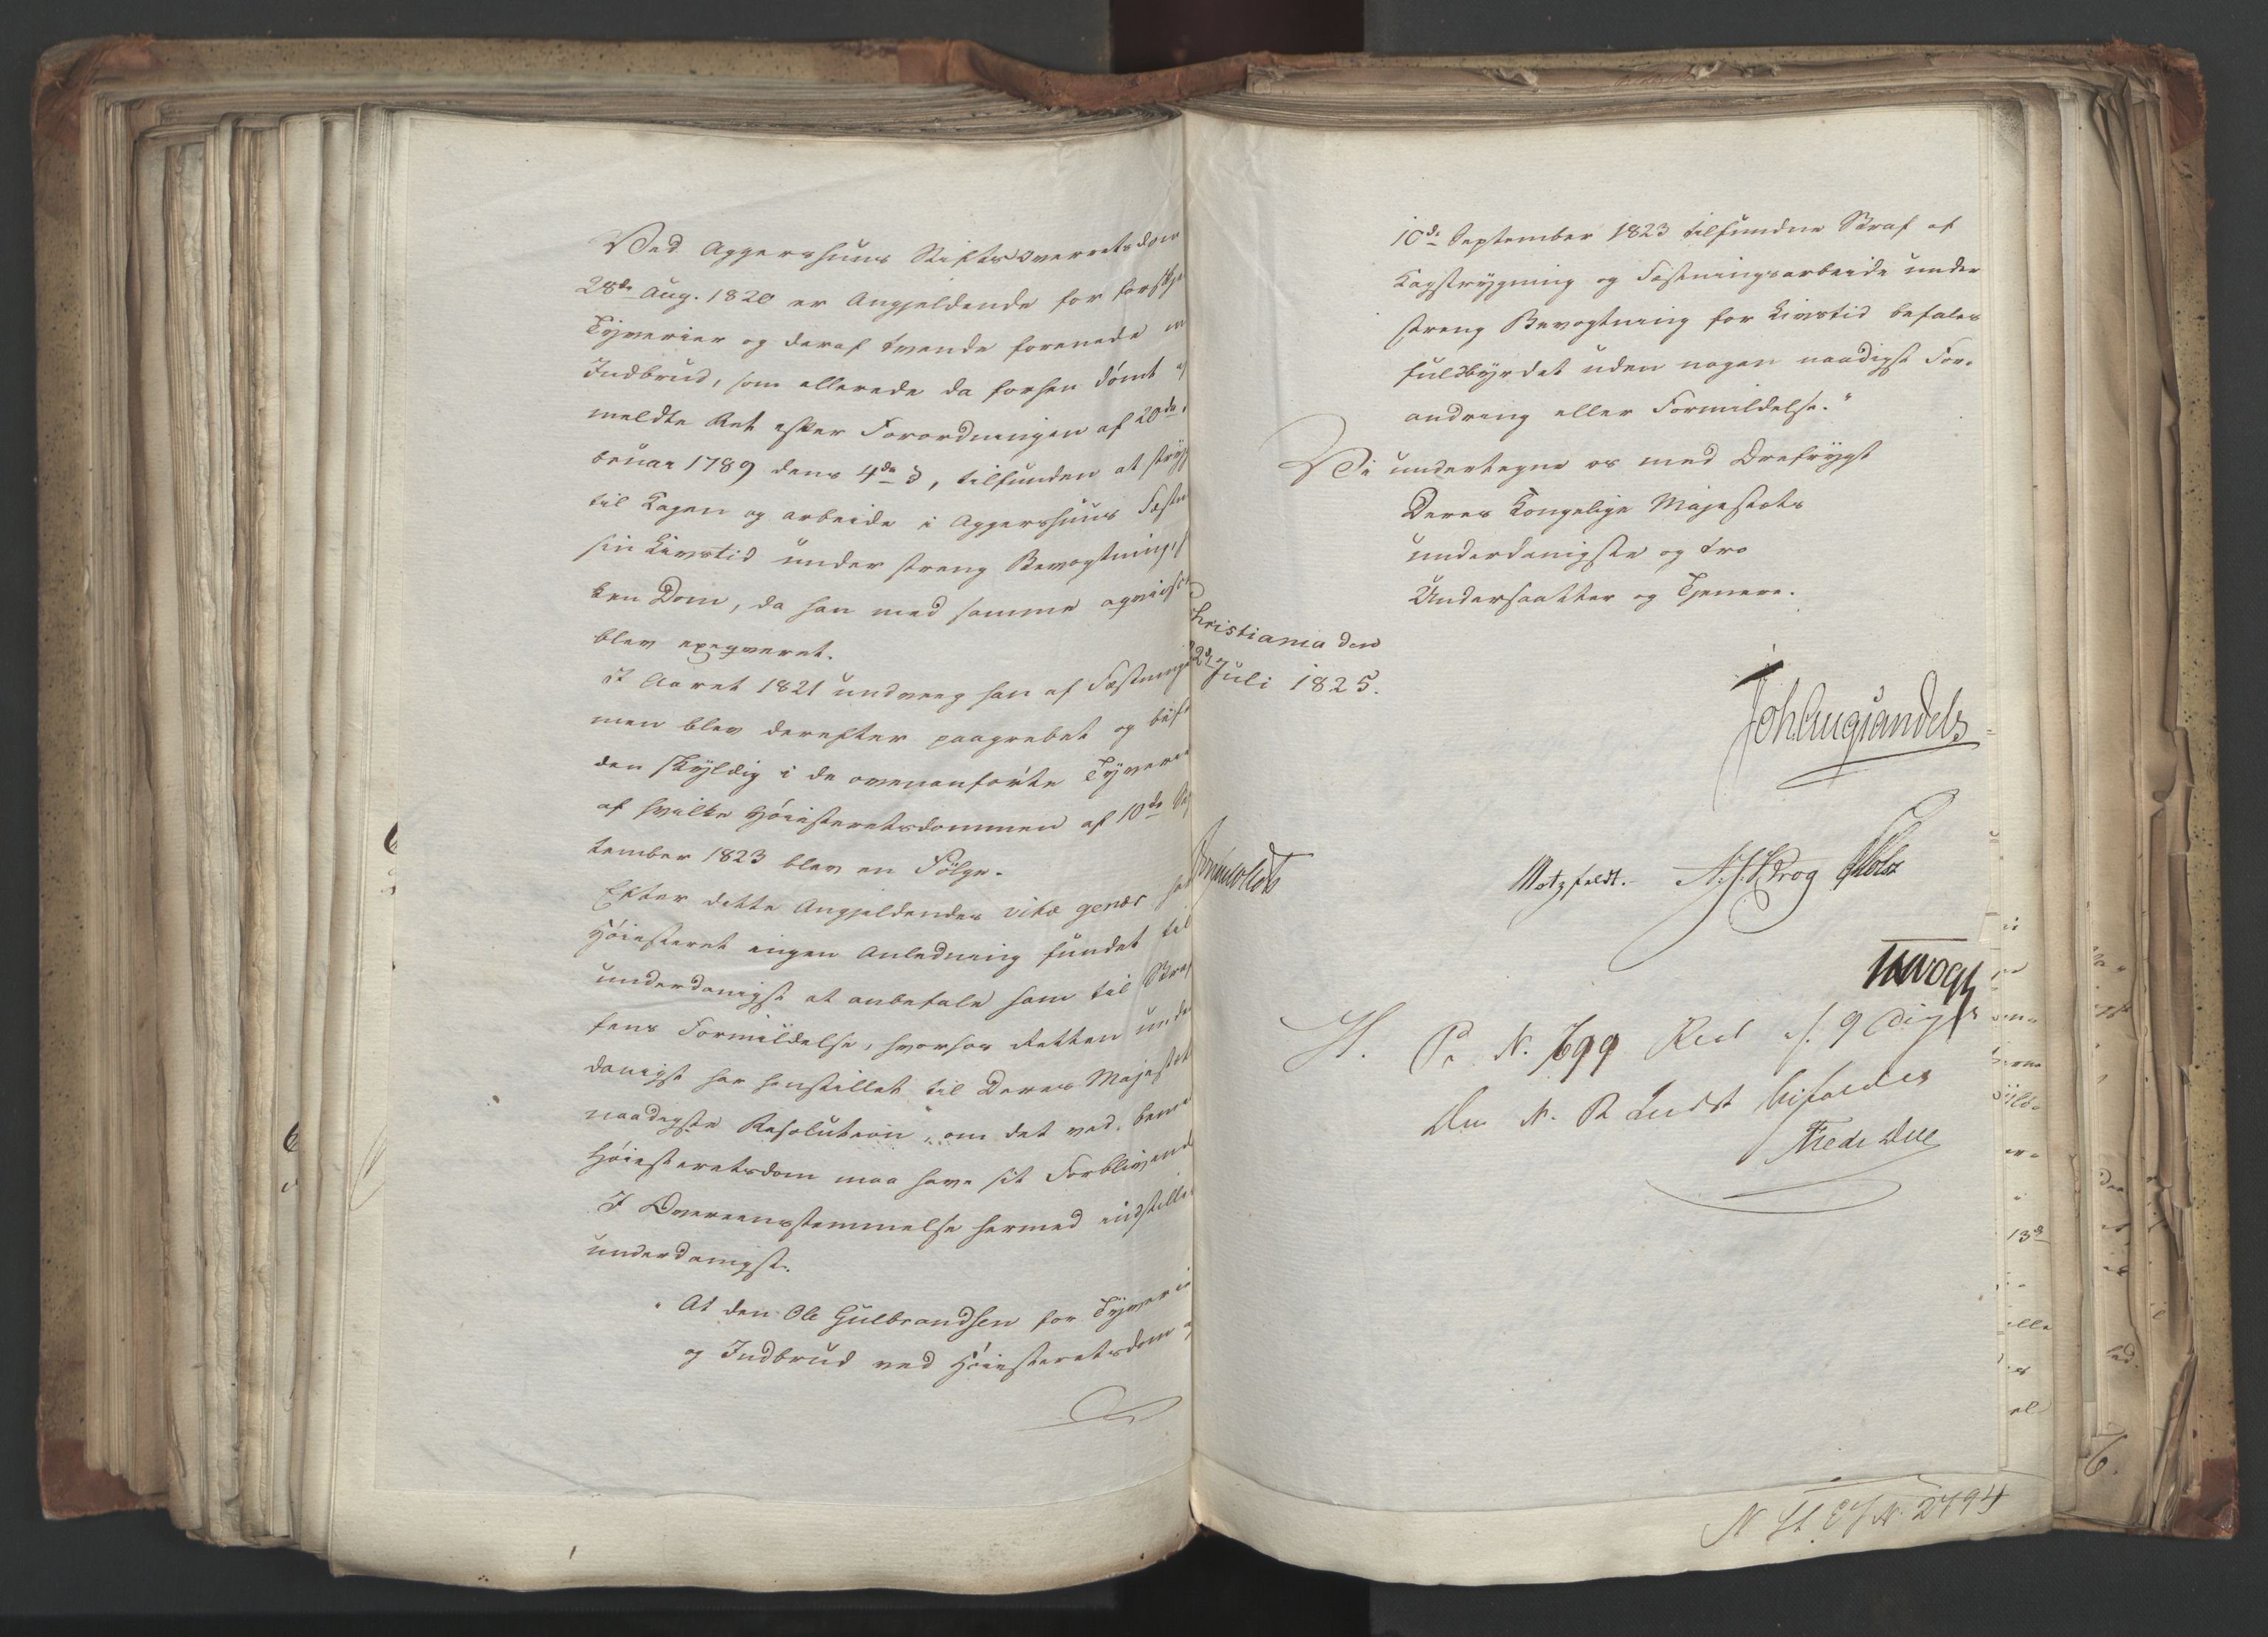 Ved Aggershuus Stiftsoverretsdom
28de Aug. 1820 er Angjeldende for forskje
Tyverier og deraf tvende forenede m
Indbrud, som allerede da forhen dømt
meldte Ret efter Forordningen af 20de
bruar 1789 dens 4de §, tilfunden at stryg
til Kagen og arbeide i Aggershuus Fæstn
sin Livstid under streng Bevogtning, h
ken Dom, da han med samme
blev exeqveret.
I Aaret 1821 undveeg han af Fæstning
men blev derefter paagrebet og bef
den skyldig i de ovenanførte Tyverie
af hvilke Høiesteretsdommen af 10de Sep
tember 1823 blev en Følge.
Efter dette Angjeldendes vitæ genus har
Høiesteret ingen Anledning fundet til
underdanigst at anbefale ham til Straf
fens Formildelse, hvorhos Retten under
danigst har henstillet til Deres Majestæts
naadigste Resolution, om det ved bem
Høiesteretsdom maa have sit Forblivende
I Overeensstemmelse hermed indstilles
underdanigst.
"At den Ole Gulbrandsen for Tyverie
og Indbrud ved Høiesteretsdom a
10de September 1823 tilfundne Straf af
Kagstrygning og Fæstningsarbeide under
streng Bevogtning for Livstid befales
fuldbyrdet uden nogen naadigst For-
andring eller Formildelse."
Vi undertegne os med Ærefrygt
Deres Kongelige Majestæts
underdanigste og tro
Undersaatter og Tjenere.
Christiania den
22de Juli 1825.
Joh Aug Sandels
Motzfeldt. Krog Holst
Vogt
H. N. 699
bifaldes
Fredr Due
N. 2794